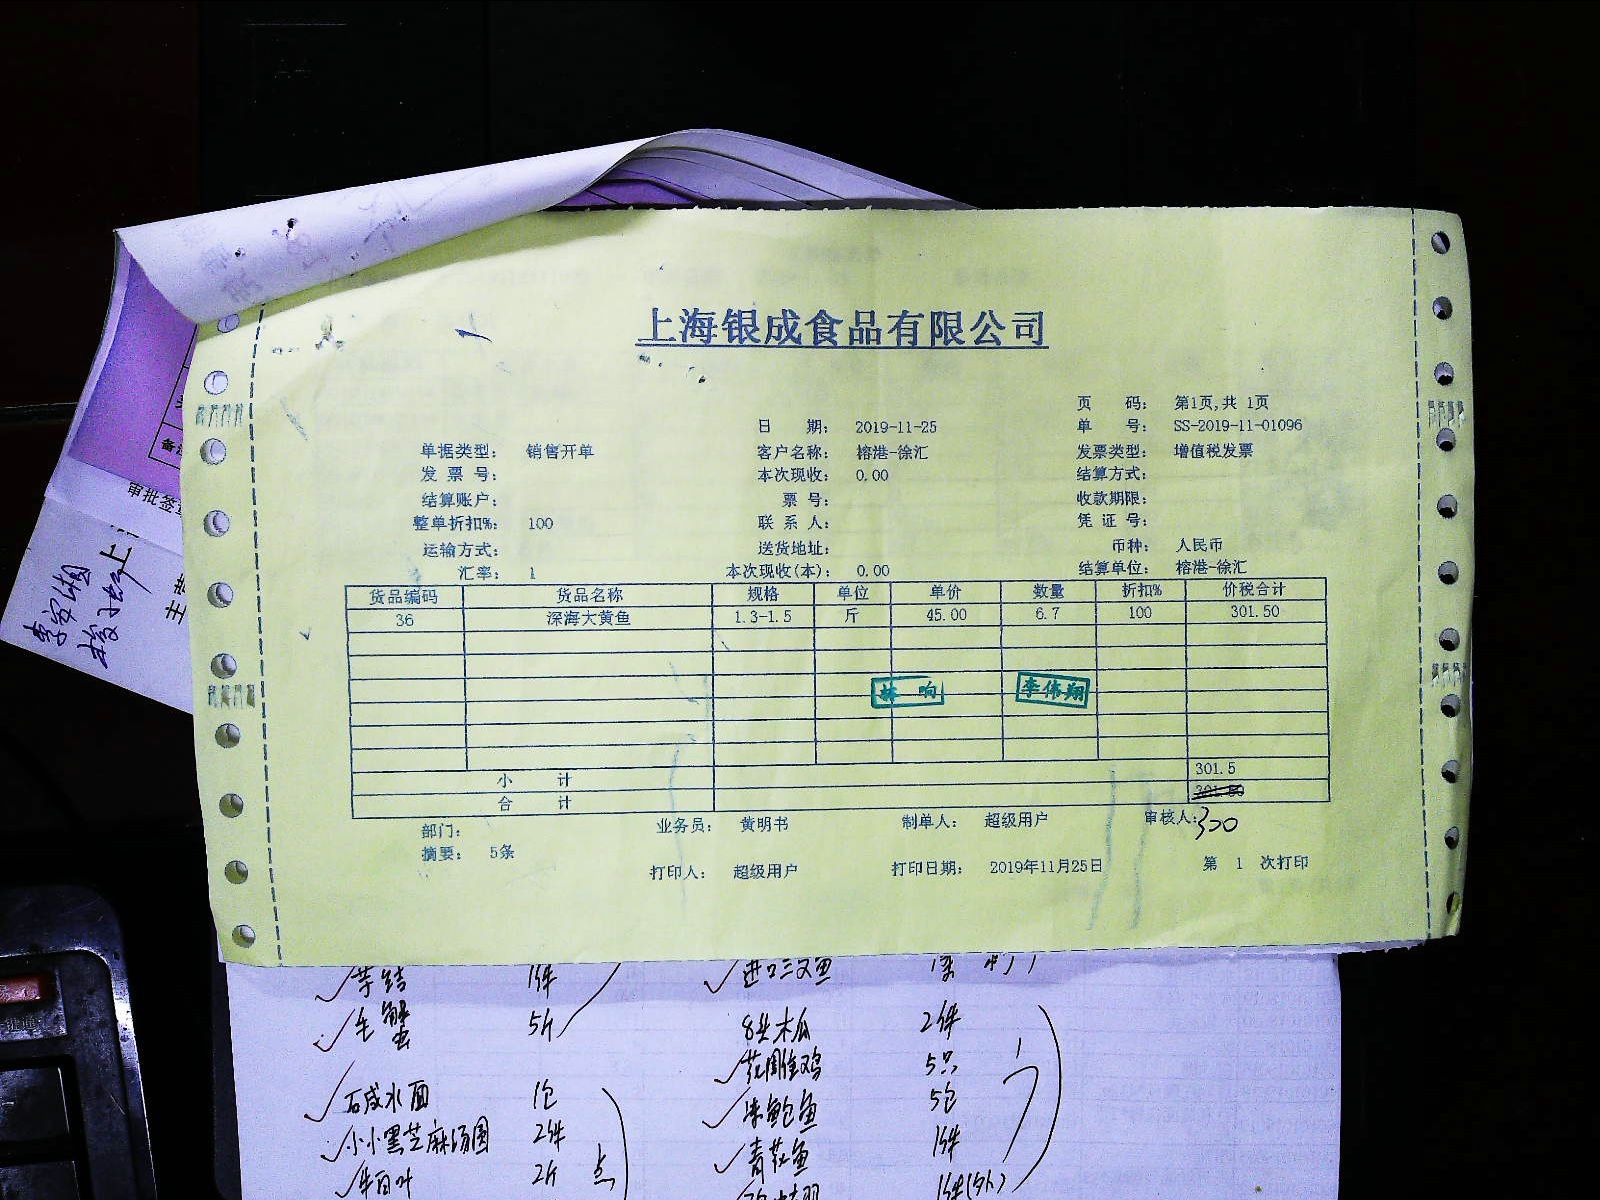 上海银成食品有限公司
页 码： 第1页,共 1页
日 期： 2019-11-25 单 号： SS-2019-11-01096
单据类型： 销售开单 客户名称： 榕港-徐汇 发票类型： 增值税发票
发 票 号： 本次现收： 0.00 结算方式：
结算账户： 票 号： 收款期限：
整单折扣%： 100 联 系 人： 凭 证 号：
运输方式： 送货地址： 币种： 人民币
汇率： 1 本次现收(本)： 0.00 结算单位： 榕港-徐汇
货品编码 货品名称 规格 单位 单价 数量 折扣% 价税合计
36 深海大黄鱼 1.3-1.5 斤 45.00 6.7 100 301.50
林 响 李伟翔
小 计 301.5
合 计 301.50
部门： 业务员： 黄明书 制单人： 超级用户 审核人： 300
摘要： 5条
打印人： 超级用户 打印日期： 2019年11月25日 第 1 次打印
审批签
主
上
1件 进口三文鱼
毛蟹 5斤 木瓜 2件
5只
碱水面 1包 鲍鱼 5包
小小黑芝麻汤圆 2件 青花鱼 1件
牛百叶 2斤 点 1件